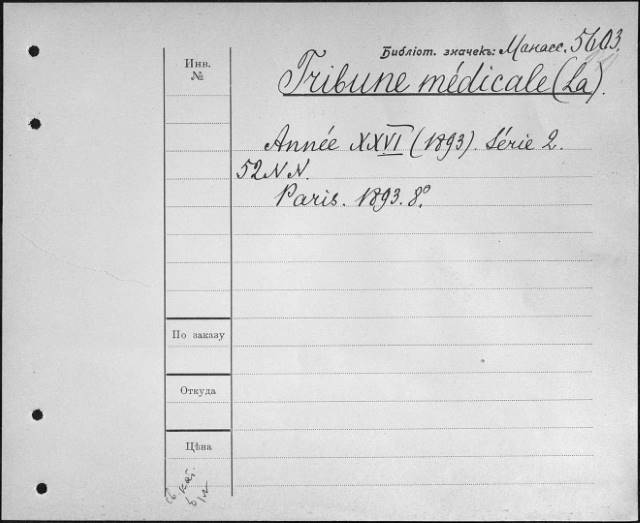 Библіот. значекъ: Манасс. 5603.
Инв.
№
Tribune médicale (La).
Année XXVI (1893). Série 2.
52 NN.
Paris. 1893. 8º.
По заказу
Откуда
Цѣна